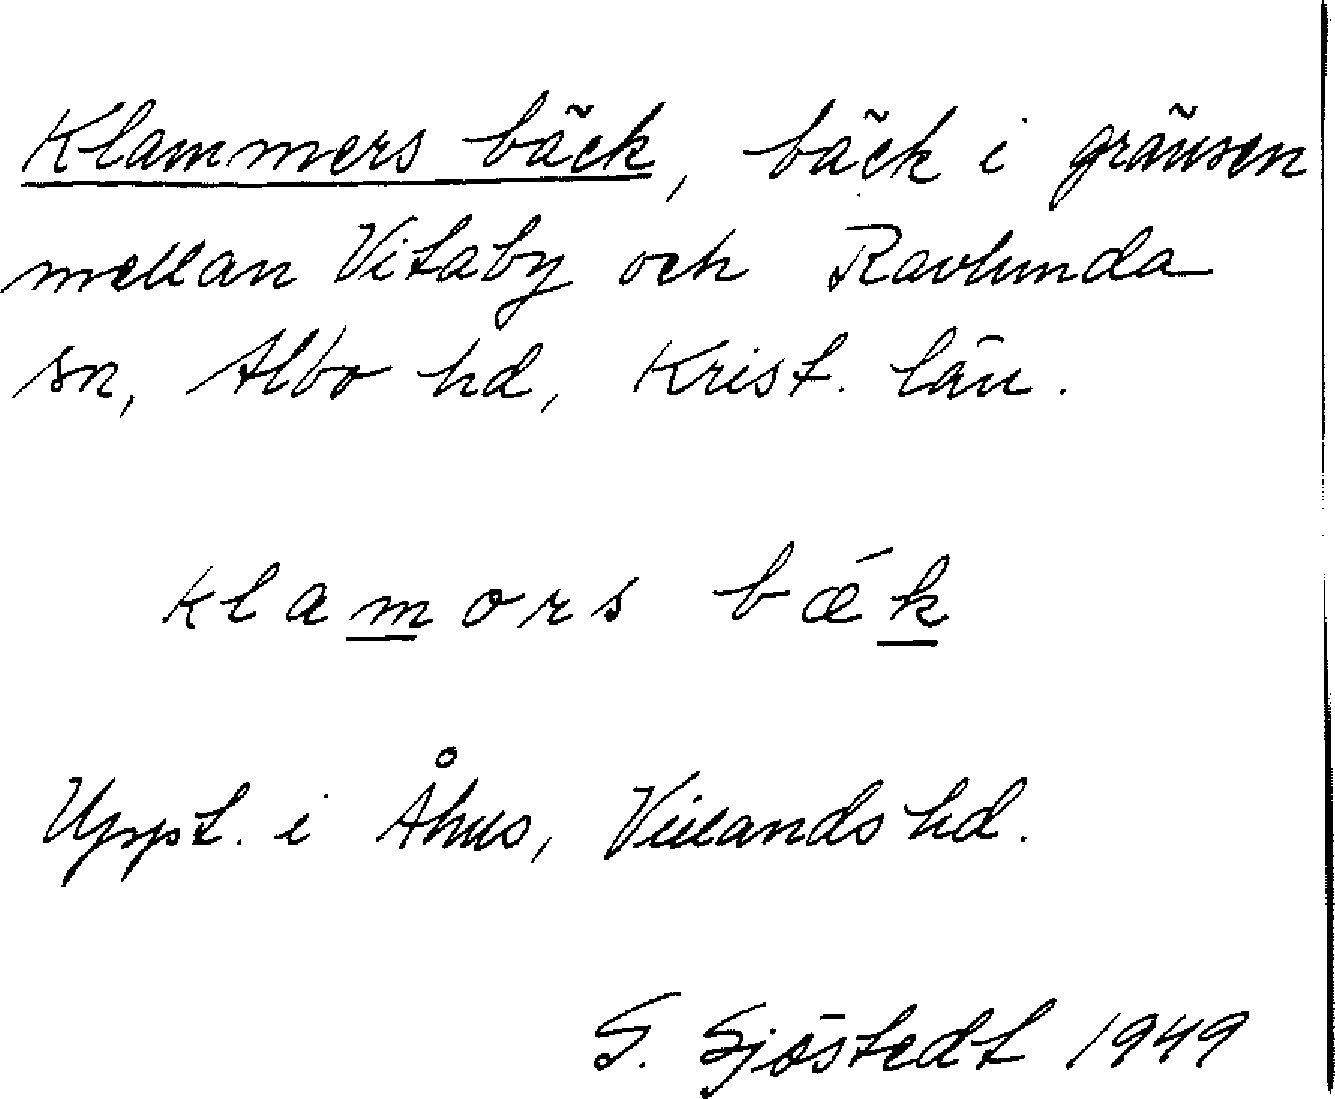 Klammers bäck, bäck i gränsen
mellan Vitaby och Ravlunda
sn, Albo hd, Krist. län.
klamors bǽk
Uppt. i Åhus, Villands hd.
G. Sjöstedt 1949